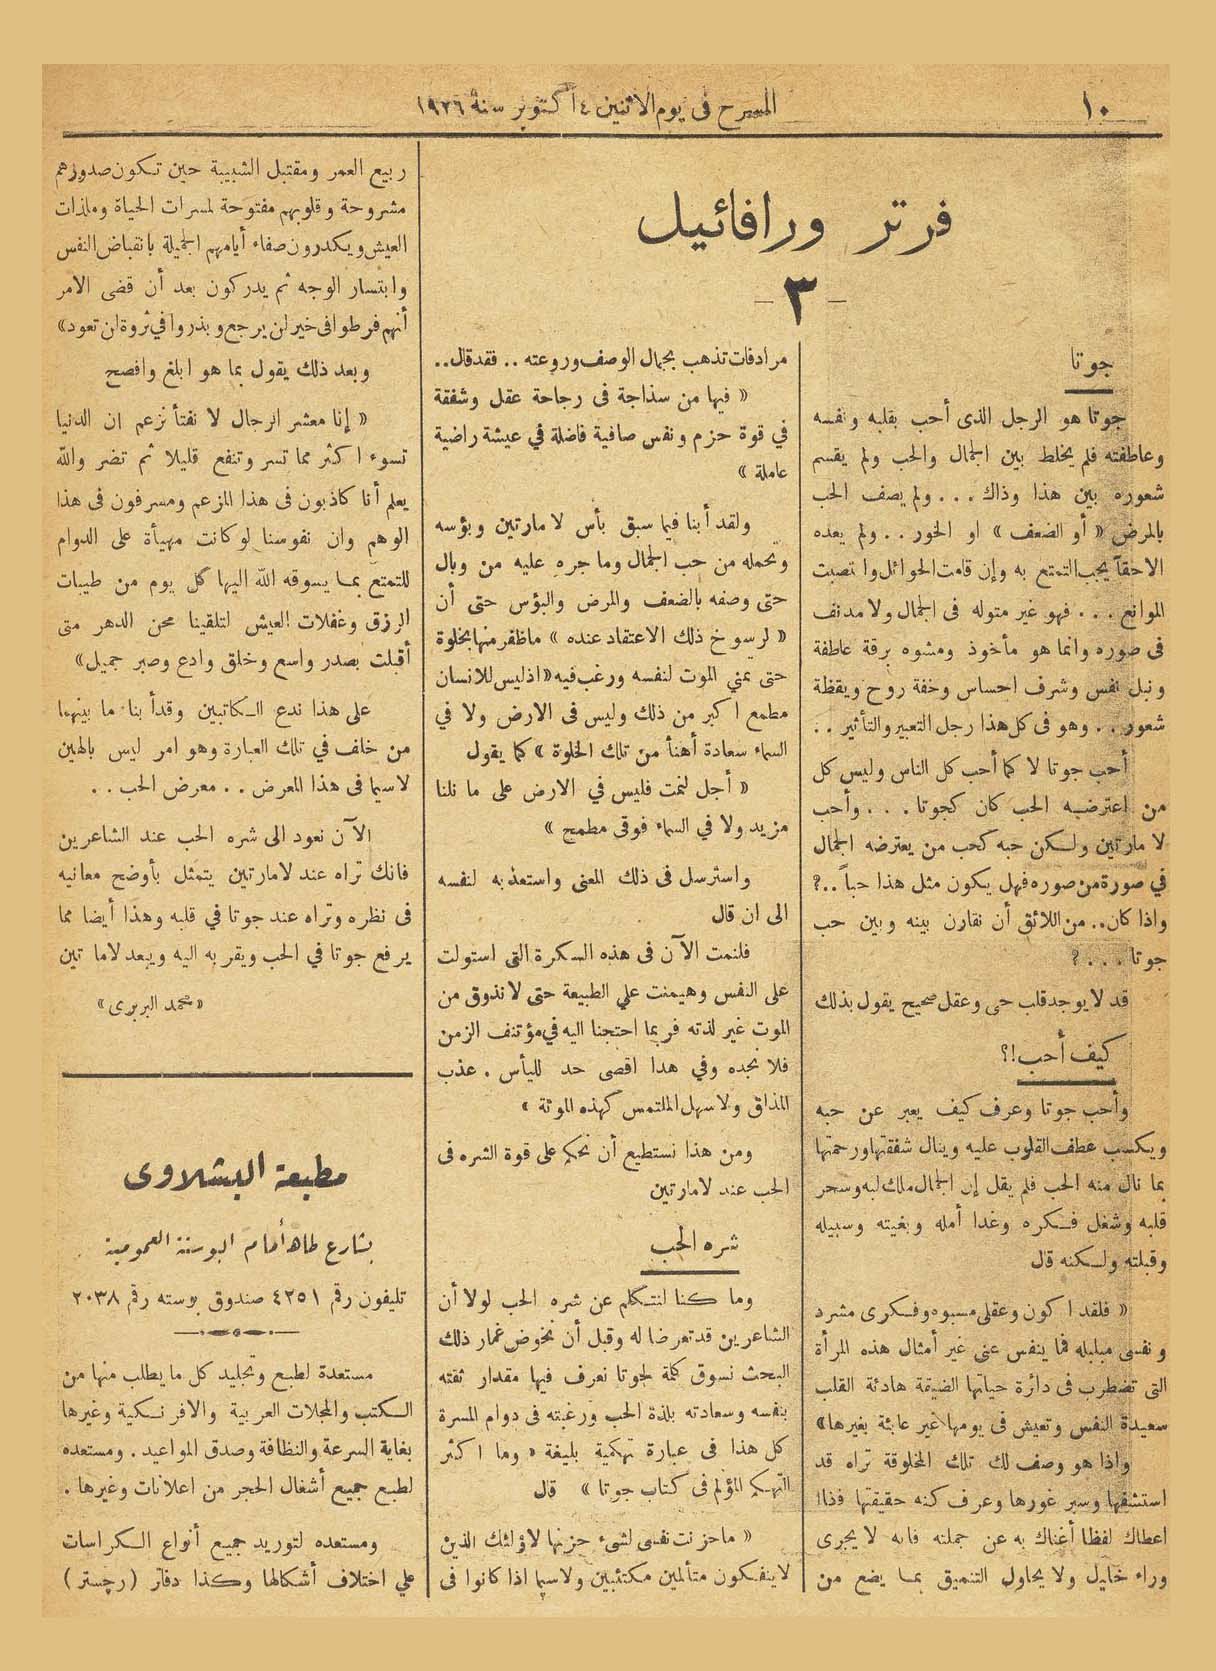 ١٠
المسرح فى يوم الاثنين ٤ اكتوبر سنة ١٩٢٦
فرتر ورافائيل
— ٣ —
جوتا
جوتا هو الرجل الذى أحب بقلبه ونفسه
وعاطفته فلم يخلط بين الجمال والحب ولم يقسم
شعوره بين هذا وذاك . . . ولم يصف الحب
بالمرض « أو الضعف » او الخور . . ولم يعده
الاحقاً يجب التمتع به وإن قامت الحوائل وانتصبت
الموانع . . . فهو غير متوله فى الجمال ولا مدنف
فى صوره وانما هو مأخوذ ومشوه برقة عاطفة
ونبل نفس وشرف احساس وخفة روح ويقظة
شعور . . وهو فى كل هذا رجل التعبير والتأثير . .
أحب جوتا لا كما أحب كل الناس وليس كل
من اعترضه الحب كان كجوتا . . . وأحب
لا مارتين ولكن حبه كحب من يعترضه الجمال
في صورة من صوره فهل يكون مثل هذا حباً . . ؟
واذا كان . . من اللائق أن نقارن بينه وبين حب
جوتا . . . ؟
قد لا يوجد قلب حى وعقل صحيح يقول بذلك
كيف أحب !؟
وأحب جوتا وعرف كيف يعبر عن حبه
ويكسب عطف القلوب عليه وينال شفقتها ورحمتها
بما نال منه الحب فلم يقل إن الجمال ملك لبه وسحر
قلبه وشغل فكره وغدا أمله وبغيته وسبيله
وقبلته ولكنه قال
« فلقد اكون وعقلى مسبوه وفكرى مشرد
ونفسى مبلبله فما ينفس عنى غير أمثال هذه المرأة
التى تضطرب فى دائرة حياتها الضيقة هادئة القلب
سعيدة النفس وتعيش فى يومها غير عابئة بغيرها »
واذا هو وصف لك تلك المخلوقة تراه قد
استشفها وسبر غورها وعرف كنه حقيقتها فاذا
اعطاك لفظا أغناك به عن جملته فانه لا يجرى
وراء خليل ولا يحاول التنميق بما يضع من
مرادفات تذهب بجمال الوصف وروعته . . فقد قال . .
« فيها من سذاجة فى رجاحة عقل وشفقة
في قوة حزم ونفس صافية فاضلة في عيشة راضية
عاملة »
ولقد أبنا فيما سبق بأس لامارتين وبؤسه
وتحمله من حب الجمال وما جره عليه من وبال
حتى وصفه بالضعف والمرض والبؤس حتى أن
« لرسوخ ذلك الاعتقاد عنده » ما ظفر منها بخلوة
حتى تمني الموت لنفسه ورغب فيه « اذ ليس للانسان
مطمع اكبر من ذلك وليس فى الارض ولا في
السماء سعادة أهنأ من تلك الخلوة » كما يقول
« أجل لنمت فليس في الارض على ما نلنا
مزيد ولا في السماء فوقى مطمح »
واسترسل فى ذلك المعنى واستعذ به لنفسه
الى ان قال
فلنمت الآن فى هذه السكرة التى استولت
على النفس وهيمنت علي الطبيعة حتى لا نذوق من
الموت غير لذته فربما احتجنا اليه في مؤتنف الزمن
فلا نجده وفي هدا اقصى حد لليأس . عذب
المذاق ولا سهل الملتمس كهذه الموتة »
ومن هذا نستطيع أن نحكم على قوة الشره فى
الحب عند لامارتين
شره الحب
وما كنا لنتكلم عن شره الحب لولا أن
الشاعرين قد تعرضا له وقبل أن نخوض غمار ذلك
البحث نسوق كلمة لجوتا نعرف فيها مقدار ثقته
بنفسه وسعادته بلذة الحب ورغبته فى دوام المسرة
كل هذا فى عبارة تهكمية بليغة « وما اكثر
التهكم المؤلم فى كتاب جوتا » قال
« ما حزنت نفسى لشىء حزنها لأولئك الذين
لا ينفكون متألمين مكتئبين ولا سيما اذا كانوا فى
ربيع العمر ومقتبل الشبيبة حين تكون صدورهم
مشروحة وقلوبهم مفتوحة لمسرات الحياة وملذات
العيش ويكدرون صفاء أيامهم الجميلة بانقباض النفس
وابتسار الوجه ثم يدركون بعد أن قضى الامر
أنهم فرطوا فى خير لن يرجع وبذروا في ثروة لن تعود »
وبعد ذلك يقول بما هو ابلغ وافصح
« إنا معشر الرجال لا نفتأ نزعم ان الدنيا
تسوء اكثر مما تسر وتنفع قليلا ثم تضر والله
يعلم أنا كاذبون فى هذا المزعم ومسرفون فى هذا
الوهم وان نفوسنا لو كانت مهيأة على الدوام
للتمتع بما يسوقه الله اليها كل يوم من طيبات
الرزق وغفلات العيش لتلقينا محن الدهر متى
أقبلت بصدر واسع وخلق وادع وصبر جميل »
على هذا ندع الكاتبين وقد أبنا ما بينهما
من خلف في تلك العبارة وهو امر ليس بالهين
لاسيما فى هذا المعرض . . معرض الحب . .
الآن نعود الى شره الحب عند الشاعرين
فانك تراه عند لامارتين يتمثل بأوضح معانيه
فى نظره وتراه عند جوتا في قلبه وهذا أيضا مما
يرفع جوتا في الحب ويقربه اليه ويبعد لاماتين
« محمد البربرى »
مطبعة البشلاوى
بشارع طاهر أمام البوستة العمومية
تليفون رقم ٤٢٥١ صندوق بوسته رقم ٢٠٣٨
مستعدة لطبع وتجليد كل ما يطلب منها من
الكتب والمجلات العربية والافرنكية وغيرها
بغاية السرعة والنظافة وصدق المواعيد . ومستعده
لطبع جميع أشغال الحجر من اعلانات وغيرها .
ومستعده لتوريد جميع أنواع الكراسات
علي اختلاف أشكالها وكذا دفاتر ( رچستر )